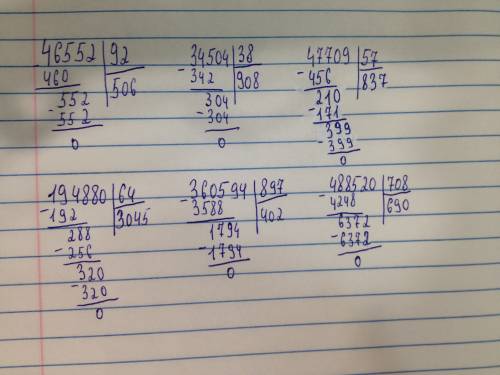 46552 | 92
460 | 506
552
- 552
0
- 34504 | 38
342 | 908
304
- 304
0
47709 | 57
- 456 | 837
210
- 171
399
- 399
0
194880 | 64
- 192 | 3045
288
- 256
320
- 320
0
- 360594 | 897
3588 | 402
1794
- 1794
0
- 488520 | 708
4248 | 690
6372
- 6372
0